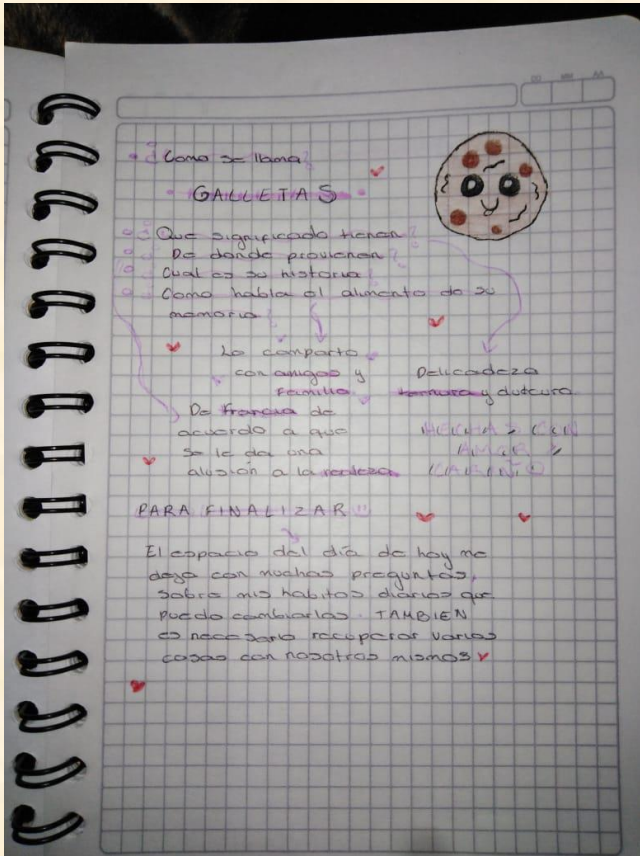 ¿Como se llama?
GALLETAS
¿Que significado tienen?
¿De donde provienen?
¿Cual es su historia?
¿Como habla el alimento de su
memoria?
Lo comparto
con amigos y
familia.
Delicadeza
ternura y dulzura
De francia de
acuerdo a que
se le da una
alusión a la realeza
HECHAS CON
AMOR Y
CARIÑO
PARA FINALIZAR!!
El espacio del día de hoy me
deja con muchas preguntas,
sobre mis habitos diarios que
puedo cambiarlos. TAMBIEN
es necesario recuperar varias
cosas con nosotros mismos